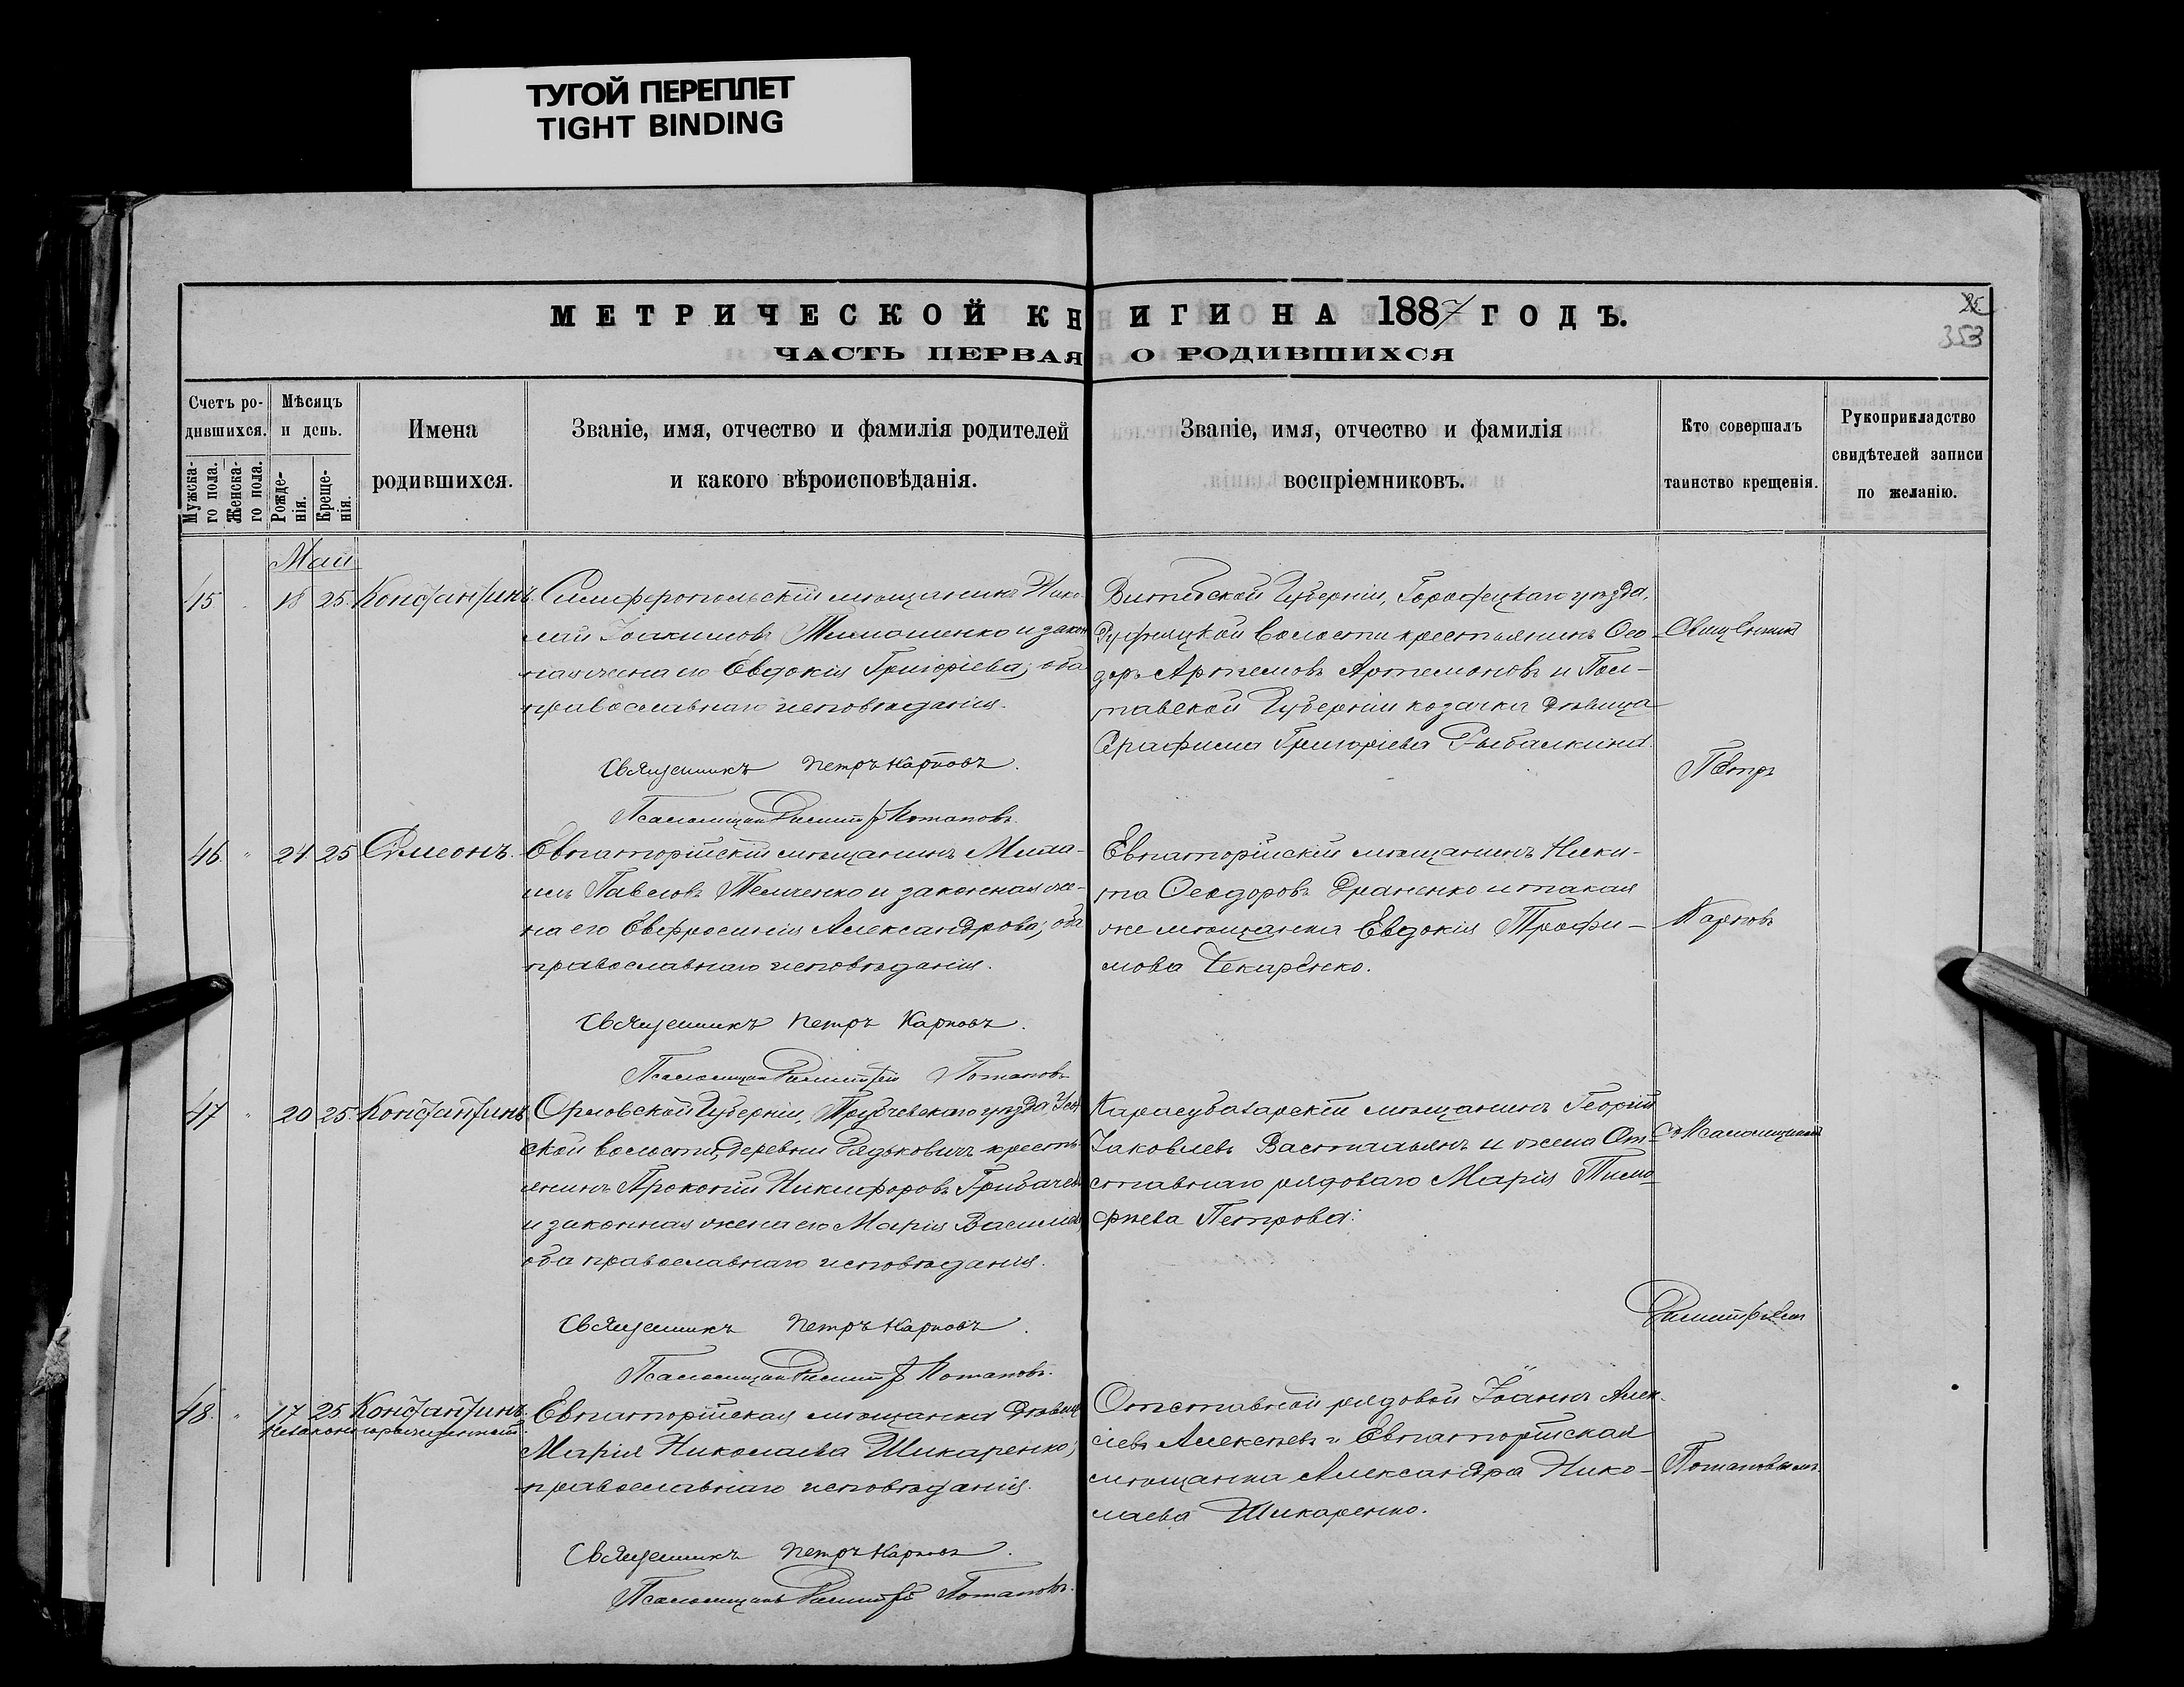 ТУГОЙ ПЕРЕПЛЕТ
TIGHT BINDING
МЕТРИЧЕСКОЙ КНИГИ НА 1887 ГОДЪ.
ЧАСТЬ ПЕРВАЯ О РОДИВШИХСЯ
353
Счетъ ро-
дившихся.
Мужска-
го пола.
Женска-
го пола.
Мѣсяцъ
и день.
Рожде-
нія.
Креще-
нія.
Имена
родившихся.
Званіе, имя, отчество и фамилія родителей
и какого вѣроисповѣданія.
Званіе, имя, отчество и фамилія
воспріемниковъ.
Кто совершалъ
таинство крещенія.
Рукоприкладство
свидѣтелей записи
по желанію.
Май
45 18 25. Константинъ.
Симферопольскій мѣщанинъ Нико-
лай Іоакимовъ Тимошенко и закон
ная жена его Евдокія Григоріева; оба
православнаго исповѣданія.
Священникъ Петръ Карповъ.
Псаломщикъ Димитр Потаповъ.
Витебской Губерніи, Городецкаго уѣзда,
волости крестьянинъ Ѳео-
доръ Артемовъ Артемоновъ и Пол-
тавской Губерніи козачка дѣвица
Серафима Григоріева Рыбалкина.
Священникъ
Петръ
46. 24 25 Симеонъ.
Евпаторійскій мѣщанинъ Миха-
илъ Павловъ Темченко и законная же-
на его Евфросинія Александрова; оба
православнаго исповѣданія.
Священникъ Петръ Карповъ.
Псаломщикъ Димитрій Потаповъ
Евпаторійскій мѣщанинъ Ники-
та Ѳеодоровъ и такая
же мѣщанка Евдокія Трофи-
мова Чекаренко.
Карповъ
47 20 25. Константинъ
Орловской Губерніи, Трубчевскаго уѣзда
ской волости, деревни Радьковичъ кресть
янинъ Прокопій Никифоровъ Грибачев
и законная жена его Марія Василіев
оба православнаго исповѣданія.
Священникъ Петръ Карповъ.
Псаломщикъ Димитр Потаповъ.
Карасубазарскій мѣщанинъ Георгій
Іаковлевъ и жена От-
ставнаго рядоваго Марія Тимо-
фѣева Петрова.
съ Псаломщикомъ
Димитріемъ
48. 17 25 Константинъ.
Незаконнорожденный
Евпаторійская мѣщанка дѣвица
Марія Николаева Шикаренко;
православнаго исповѣданія.
Священникъ Петръ Карповъ.
Псаломщикъ Димитрій Потаповъ.
Отставной рядовой Іоаннъ Алек-
сіевъ Алексѣевъ и Евпаторійская
мѣщанка Александра Нико-
лаева Шикаренко.
Потаповымъ.